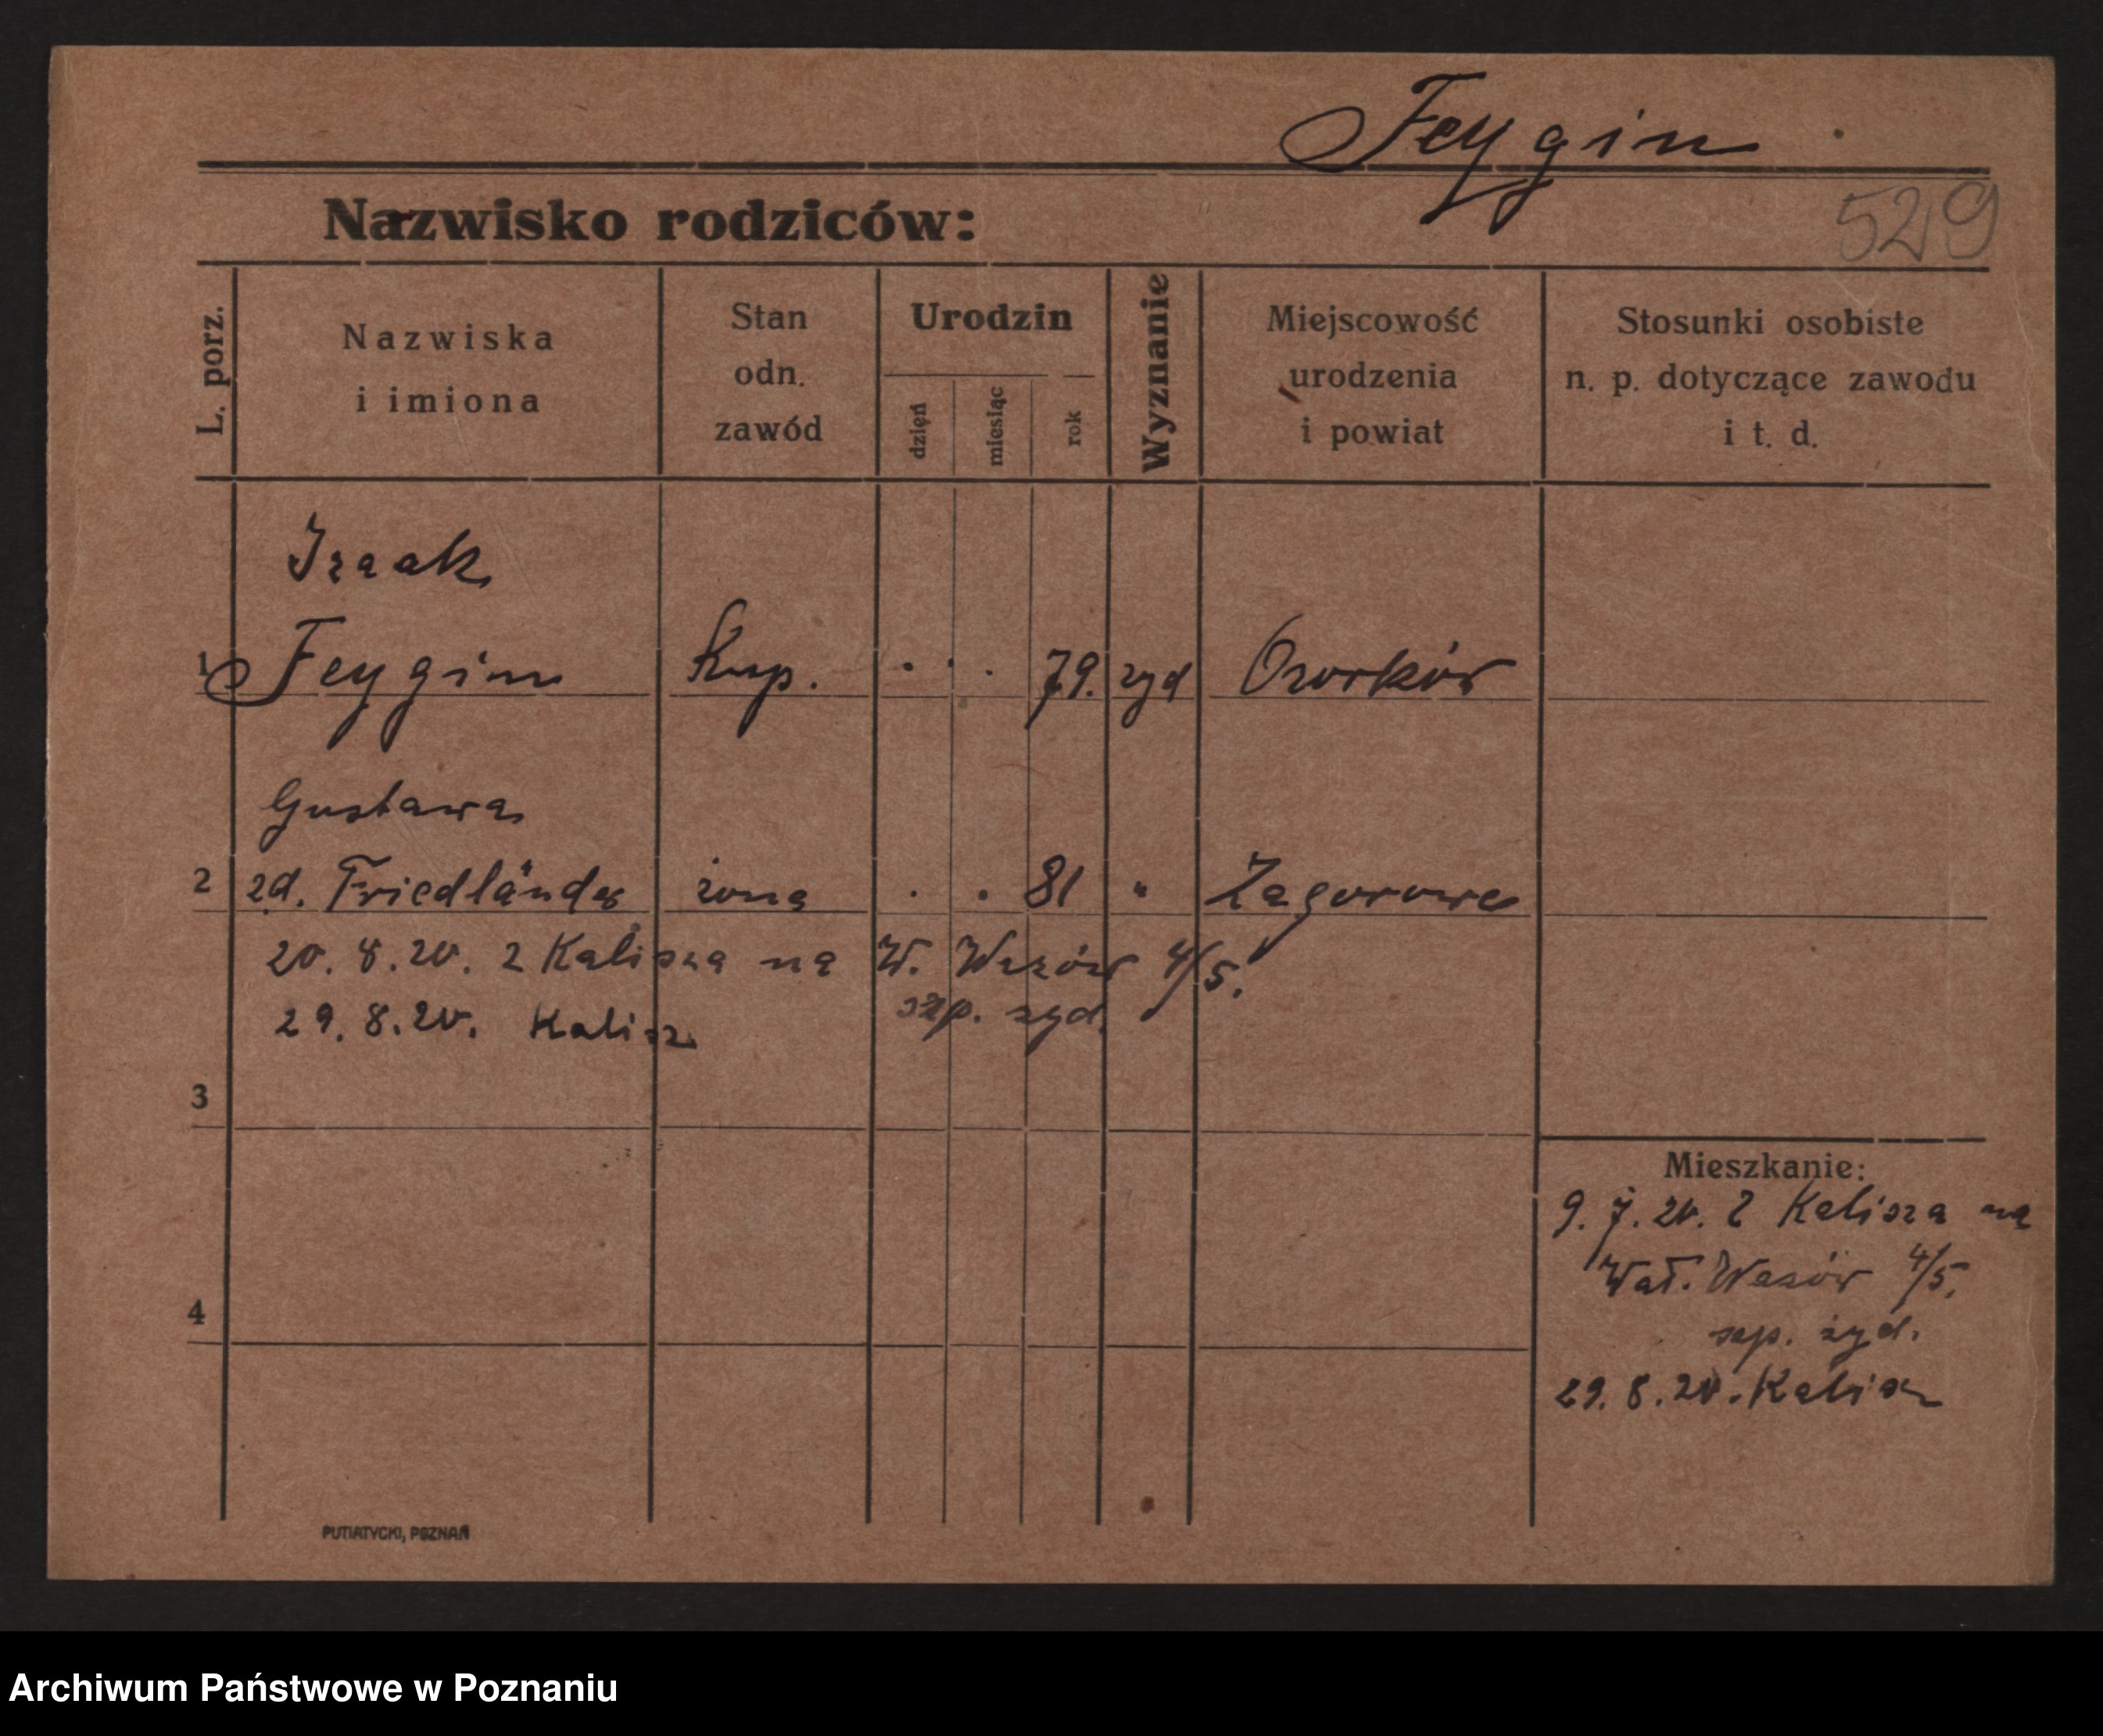 Feygin
529
Nazwisko rodziców:
L. porz.
Nazwiska
i imiona
Stan
odn.
zawód
Urodzin
dzięń
miesiąc
rok
Wyznanie
Miejscowość
urodzenia
i powiat
Stosunki osobiste
n. p. dotyczące zawodu
i t. d.
Izaak
1 Feygin kup. 79. żyd Ozorków
Gustawa
2 zd. Friedländer żona 81 " Zagorowo
20. 8. 20. z Kalisza na W. Wazów 4/5.
szp. żyd.
29. 8. 20. Kalisz
3
4
Mieszkanie:
9. 7. 20. z Kalisza na
Wał. Wazów 4/5.
szp. żyd.
29. 8. 20. Kalisz
PUTIATYCKI, POZNAŃ
Archiwum Państwowe w Poznaniu